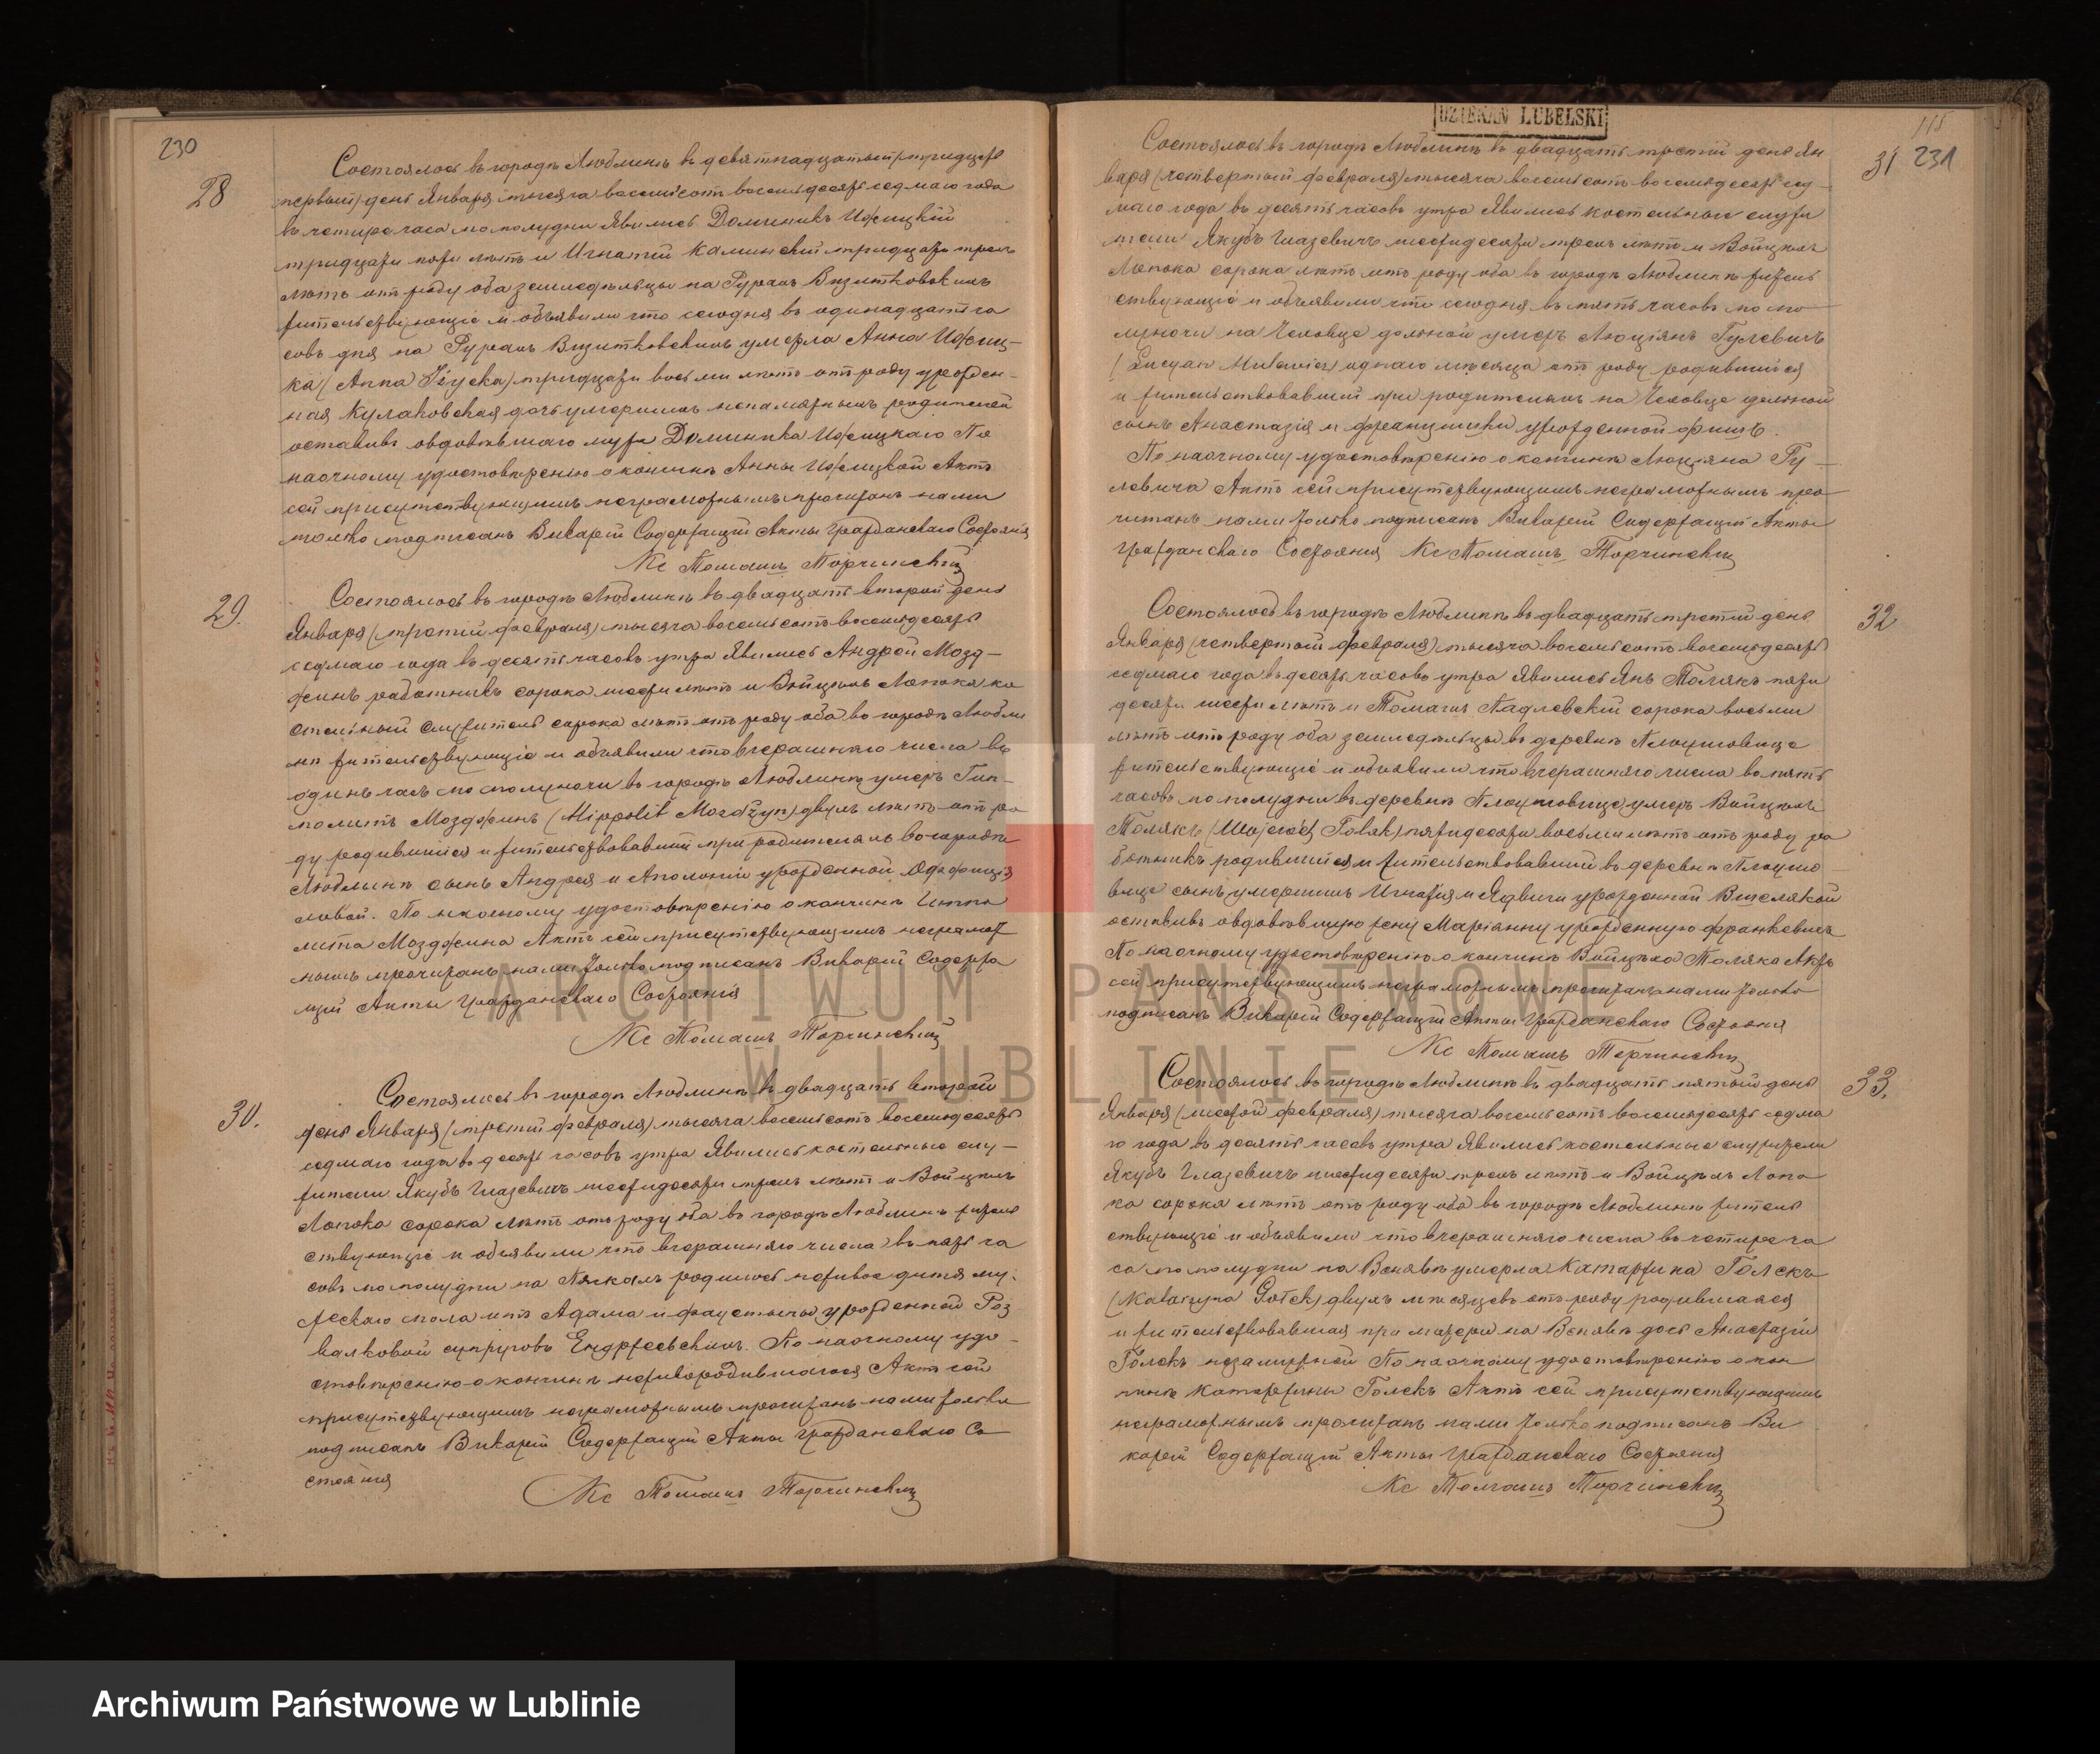 230
28
Состоялось въ городѣ Люблинѣ въ девятнадцатый (тридцать
первый) день Января тысяча восемьсотъ восемьдесятъ седмаго года
въ четыре часа по полудни явились Доминикъ Ижицкій
тридцати пяти лѣтъ и Игнатій Каминскій тридцати трехъ
лѣтъ отъ роду оба земледѣльцы на Рурахъ Визитковскихъ
жительствующіе и объявили что сегодня въ одинадцать ча
совъ дня на Рурахъ Визитковскихъ умерла Анна Ижиц-
ка (Anna Iżycka) тридцати восьми лѣтъ отъ роду урожден-
ная Кулаковская дочь умершихъ непамятныхъ родителей
оставивъ овдовѣвшаго мужа Доминика Ижицкаго По
наочному удостовѣренію о кончинѣ Анны Ижицкой Актъ
сей присутствующимъ неграмотнымъ прочитанъ нами
только подписанъ Викарій Содержащій Акты Гражданскаго Состоянія
Кс Томашъ Торчинскій
29.
Состоялось въ городѣ Люблинѣ въ двадцать второй день
Января (третій февраля) тысяча восемьсотъ восемьдесятъ
седмаго года въ десять часовъ утра явились Андрей Мозд-
жинъ работникъ сорока шести лѣтъ и Войцѣхъ Лопока ко
стельный служитель сорока лѣтъ отъ роду оба въ городѣ Любли
нѣ жительствующіе и объявили что вчерашняго числа въ
одинъ часъ по полуночи въ городѣ Люблинѣ умеръ Гип-
политъ Мозджинъ (Hippolit Mozdżyn) двухъ лѣтъ отъ ро
ду родившійся и жительствовавшій при родителяхъ въ городѣ
Люблинѣ сынъ Андрея и Аполоніи урожденной
ловой. По наочному удостовѣренію о кончинѣ Иппо
лита Мозджина Актъ сей присутствующимъ неграмот
нымъ прочитанъ нами только подписанъ Викарій Содержа
щій Акты Гражданскаго Состоянія
Кс Томашъ Торчинскій
30.
Состоялось въ городѣ Люблинѣ въ двадцать второй
день Января (третій февраля) тысяча восемьсотъ восемьдесятъ
седмаго года въ десять часовъ утра явились костельные слу-
жители Якубъ Глазевичъ шестидесяти трехъ лѣтъ и Войцѣхъ
Лопока сорока лѣтъ отъ роду оба въ городѣ Люблинѣ житель
ствующіе и объявили что вчерашняго числа въ пять ча
совъ по полудни на Пяскахъ родилось неживое дитя му-
жескаго пола отъ Адама и Фаустины урожденной Роз
валковой супруговъ Ендржеевскихъ. По наочному удо-
стовѣренію о кончинѣ неживородившагося Актъ сей
присутствующимъ неграмотнымъ прочитанъ нами только
подписанъ Викарій Содержащій Акты Гражданскаго Со
стоянія
Кс Томашъ Торчинскій
DZIEKAN LUBELSKI
115
231
31
Состоялось въ городѣ Люблинѣ въ двадцать третій день Ян
варя (четвертый февраля) тысяча восемьсотъ восемьдесятъ сед-
маго года въ десять часовъ утра явились костельные служи
тели Якубъ Глазевичъ шестидесяти трехъ лѣтъ и Войцѣхъ
Лопока сорока лѣтъ отъ роду оба въ городѣ Люблинѣ житель
ствующіе и объявили что сегодня въ пять часовъ по по
луночи на Чеховце дольной умеръ Люціянъ Гулевичъ
(Lucyan Hulewicz) одного мѣсяца отъ роду родившійся
и жительствовавшій при родителяхъ на Чеховце дольной
сынъ Анастазія и Францишки урожденной Фишъ.
По наочному удостовѣренію о кончинѣ Люціяна Гу-
левича Актъ сей присутствующимъ неграмотнымъ про
читанъ нами только подписанъ Викарій Содержащій Акты
Гражданскаго Состоянія Кс Томашъ Торчинскій
32
Состоялось въ городѣ Люблинѣ въ двадцать третій день
Января (четвертый февраля) тысяча восемьсотъ восемьдесятъ
седмаго года въ десять часовъ утра явились Янъ Толякъ пяти
десяти шести лѣтъ и Томашъ Падлевскій сорока восьми
лѣтъ отъ роду оба земледѣльцы въ деревнѣ Плоушовице
жительствующіе и объявили что вчерашняго числа въ пять
часовъ по полудни въ деревнѣ Плоушовице умеръ Войцѣхъ
Толякъ (Wojciech Tolak) пятидесяти восьми лѣтъ отъ роду ра
ботникъ родившійся и жительствовавшій въ деревнѣ Плоушо-
вице сынъ умершихъ Игнатія и Ядвиги урожденной
оставивъ овдовѣвшую жену Маріанну урожденную Франкевичъ
По наочному удостовѣренію о кончинѣ Войцѣха Толяка Актъ
сей присутствующимъ неграмотнымъ прочитанъ нами только
подписанъ Викарій Содержащій Акты Гражданскаго Состоянія
Кс Томашъ Торчинскій
33.
Состоялось въ городѣ Люблинѣ въ двадцать пятый день
Января (шестой февраля) тысяча восемьсотъ восемьдесятъ седма
го года въ десять часовъ утра явились костельные служители
Якубъ Глазевичъ шестидесяти трехъ лѣтъ и Войцѣхъ Лопо
ка сорока лѣтъ отъ роду оба въ городѣ Люблинѣ житель
ствующіе и объявили что вчерашняго числа въ четыре ча
са по полудни на Венявѣ умерла Катаржина Голекъ
(Katarzyna Gołek) двухъ мѣсяцевъ отъ роду родившаяся
и жительствовавшая при матери на Венявѣ дочь Анастазіи
Голекъ незамужной По наочному удостовѣренію о кон
чинѣ Катаржины Голекъ Актъ сей присутствующимъ
неграмотнымъ прочитанъ нами только подписанъ Ви
карій Содержащій Акты Гражданскаго Состоянія
Кс Томашъ Торчинскій
ARCHIWUM PAŃSTWOWE
W LUBLINIE
Archiwum Państwowe w Lublinie